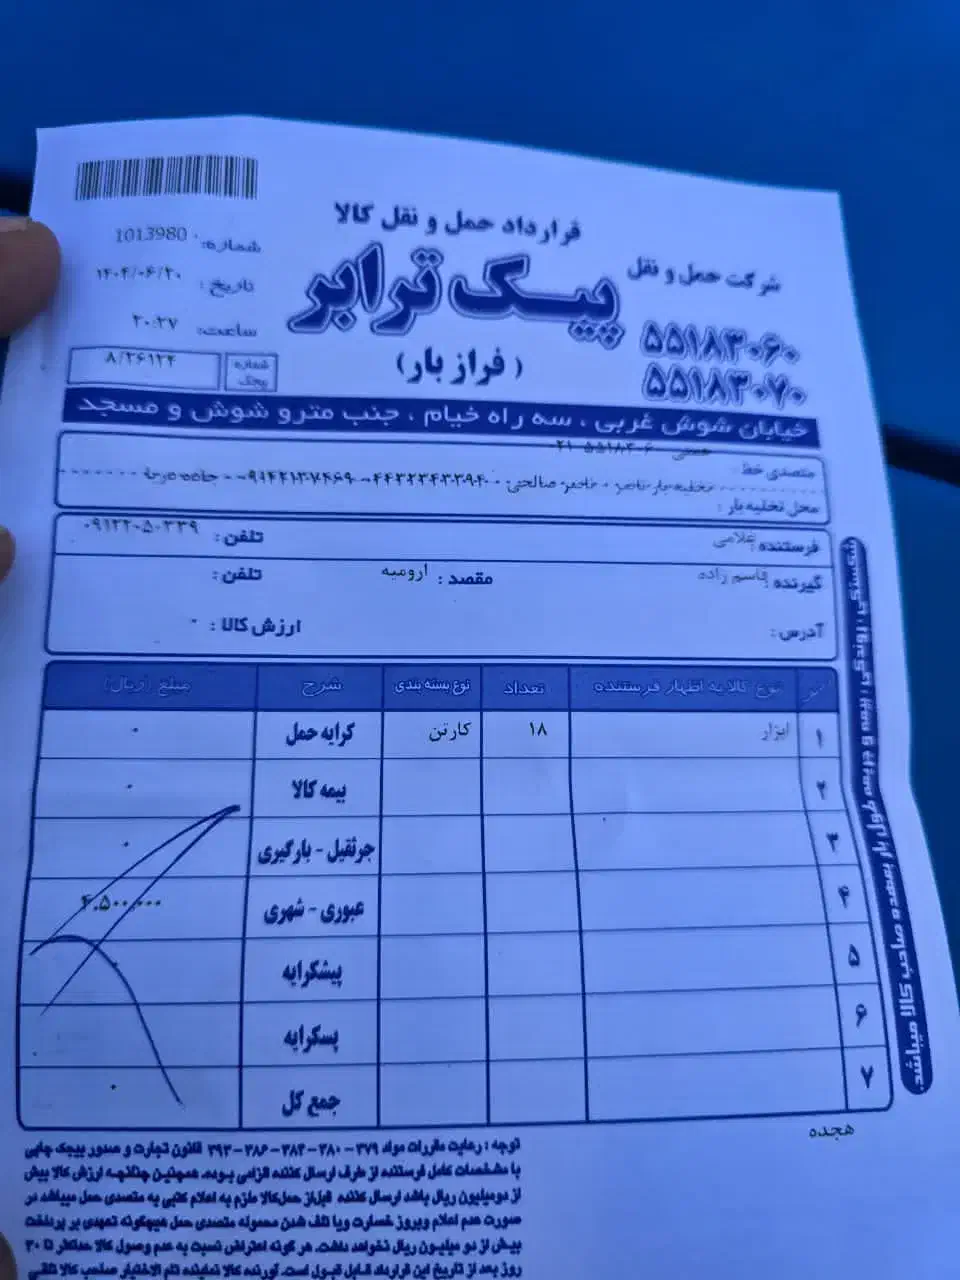 قرارداد حمل و نقل کالا
شرکت حمل و نقل
پیک ترابر
(فراز بار)
۵۵۱۸۳۰۶۰
۵۵۱۸۳۰۷۰
شماره: 1013980
تاریخ: ۱۴۰۴/۰۶/۲۰
ساعت: ۲۰:۲۷
شماره بیجک ۸/۲۶۱۲۴
خیابان شوش غربی ، سه راه خیام ، جنب مترو شوش و مسجد
متصدی خط: ۰۲۱-۵۵۱۸۳۰۶۰
محل تخلیه بار:
فرستنده: غلامی تلفن: ۰۹۱۲۲۰۵۰۳۳۹
گیرنده: قاسم زاده مقصد: ارومیه تلفن:
آدرس: ارزش کالا: ۰
نوع کالا به اظهار فرستنده تعداد نوع بسته بندی شرح مبلغ (ریال)
۱ ابزار ۱۸ کارتن کرایه حمل ۰
۲ بیمه کالا ۰
۳ جرثقیل - بارگیری ۰
۴ عبوری - شهری ۴.۵۰۰.۰۰۰
۵ پیشکرایه ۰
۶ پسکرایه ۰
۷ جمع کل ۰
هجده
توجه: رعایت مقررات مواد ۳۷۹ - ۳۸۰ - ۳۸۴ - ۳۸۶ - ۳۹۳ قانون تجارت و صدور بیجک چاپی
با مشخصات کامل فرستنده از طرف ارسال کننده الزامی بوده. همچنین چنانچه ارزش کالا بیش
از دومیلیون ریال باشد ارسال کننده قبل از حمل کالا ملزم به اعلام کتبی به متصدی حمل میباشد در
صورت عدم اعلام وبروز خسارت ویا تلف شدن محموله متصدی حمل هیچگونه تعهدی بر پرداخت
بیش از دو میلیون ریال نخواهد داشت. هر گونه اعتراض نسبت به عدم وصول کالا حداکثر تا ۳۰
روز بعد از تاریخ این قرارداد قابل قبول است. آورنده کالا نماینده تام الاختیار صاحب کالا تلقی